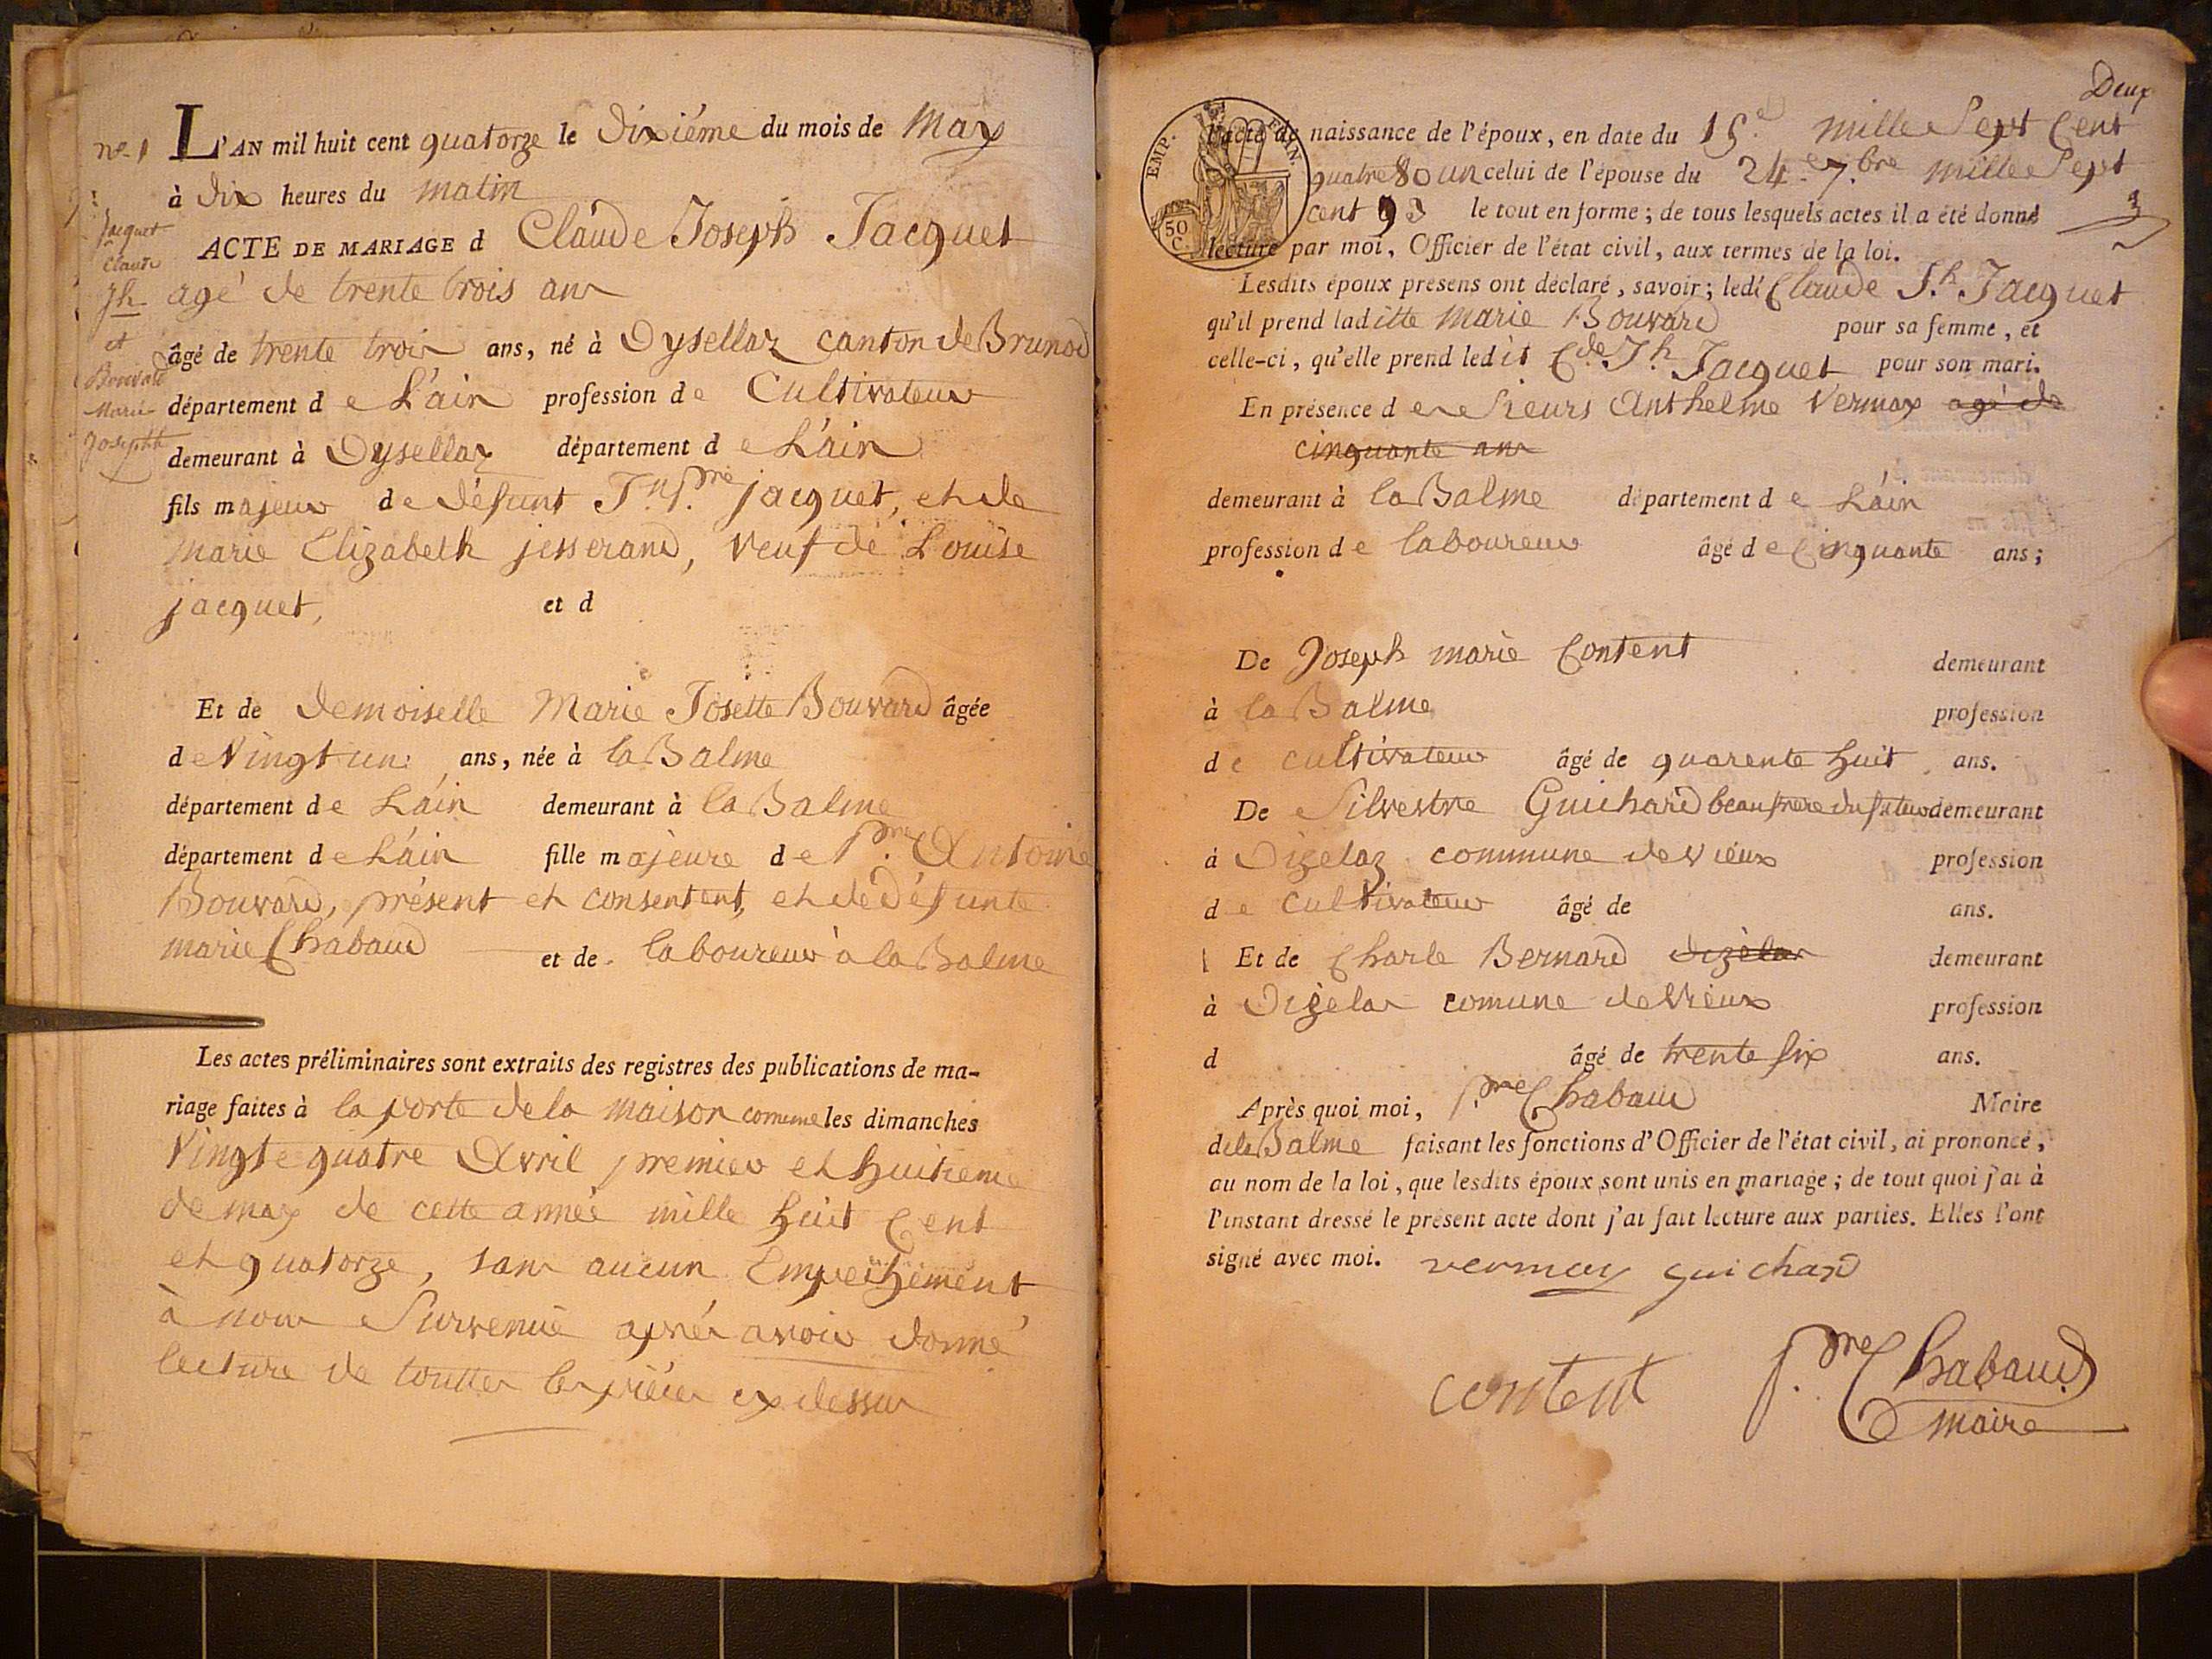 nº. 1
L'AN mil huit cent quatorze le dixiéme du mois de May
à dix heures du matin
Jacquet
Claude
Jh
et
Bouvard
Marie
Josephte
ACTE DE MARIAGE d Claude Joseph Jacquet
agé de trente trois ans
âgé de trente trois ans, né à Dysellaz canton de Brunod
département de L'ain profession de Cultivateur
demeurant à Dysellaz département de L'ain
fils majeur de défunt Jn Pre jacquet, et de
marie Elizabeth jesserand, veuf de Louise
jacquet, et d
Et de demoiselle Marie Josette Bouvard âgée
de Vingt un ans, née à la Balme
département de L'ain demeurant à la Balme
département de L'ain fille majeure de Pre Antoine
Bouvard, présent et consentent, et de défunte
marie Chabaud et de laboureur à la Balme
Les actes préliminaires sont extraits des registres des publications de ma-
riage faites à la porte de la maison comune les dimanches
Vingt quatre Avril premier et huitieme
de may de cette année mille huit Cent
et quatorze, sans aucun Empechement
à nous Survenue aprés avoir donné
lecture de touttes les piéces cy dessus
Deux
EMP. FIN.
50 C.
l'acte de naissance de l'époux, en date du 15.e mille Sept Cent
quatre 80 un celui de l'épouse du 24.e 7.bre mille Sept
cent 93 le tout en forme; de tous lesquels actes il a été donné
lecture par moi, Officier de l'état civil, aux termes de la loi.
Lesdits époux présens ont déclaré, savoir; ledi Claude J.h Jacquet
qu'il prend laditte Marie Bouvard pour sa femme, et
celle-ci, qu'elle prend ledit C.de J.h Jacquet pour son mari.
En présence des Sieurs Anthelme Vermay agé de
cinquante ans
demeurant à la Balme département de L'ain
profession de laboureur âgé de Cinquante ans;
De Joseph marie Content demeurant
à la Balme profession
de cultivateur âgé de quarente huit ans.
De Silvestre Guichard beaufrere du futeur demeurant
à Dizelaz commune de vieux profession
de cultivateur âgé de ans.
Et de Charle Bernard dizelas demeurant
à Dizelas comune de Vieux profession
d âgé de trente six ans.
Après quoi moi, P.re Chabaud Maire
de la Balme faisant les fonctions d'Officier de l'état civil, ai prononcé,
au nom de la loi, que lesdits époux sont unis en mariage; de tout quoi j'ai à
l'instant dressé le présent acte dont j'ai fait lecture aux parties. Elles l'ont
signé avec moi. vermay guichard
content P.re Chabaud
maire